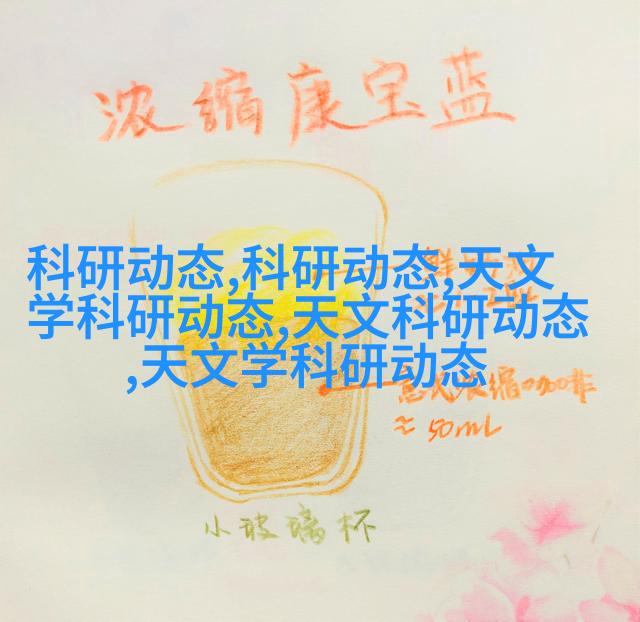 浓缩康宝蓝
科研动态,科研动态,天文
学科研动态,天文科研动态
,天文学科研动态
意式浓缩咖啡
≈ 50mL
小玻璃杯